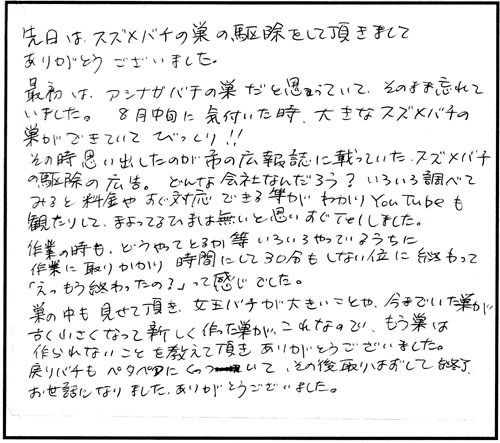 先日は、スズメバチの巣の駆除をして頂きまして
ありがとうございました。
最初は、アシナガバチの巣だと思っていて、そのまま忘れて
いました。8月中旬に気付いた時、大きなスズメバチの
巣ができていてびっくり!!
その時思い出したのが市の広報誌に載っていた、スズメバチ
の駆除の広告。どんな会社なんだろう?いろいろ調べて
みると料金やすぐ対応できる事がわかりYouTubeも
観たりして、まよってるひまは無いと思いすぐTelしました。
作業の時も、どうやってとるか等いろいろやっているうちに
作業に取りかかり時間にして30分もしない位に終わって
「えっもう終わったの?」って感じでした。
巣の中も見せて頂き、女王バチが大きいことや、今までいた巣が
古く小さくなって新しく作った巣が、これなので、もう巣は
作られないことを教えて頂きありがとうございました。
戻りバチもペタペタにくっついて、その後取りはずして終了
お世話になりました、ありがとうございました。